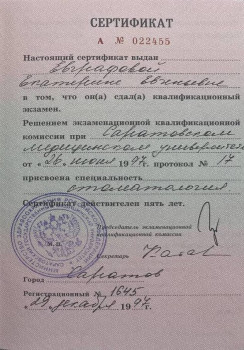 СЕРТИФИКАТ
А № 022455
Настоящий сертификат выдан
Евграфовой
Екатерине
в том, что он(а) сдал(а) квалификационный
экзамен.
Решением экзаменационной квалификационной
комиссии при Саратовском
медицинском университете
от «26 июня 1997. протокол № 17
присвоена специальность
стоматология
Сертификат действителен пять лет.
Председатель экзаменационной
квалификационной комиссии
М.П.
Секретарь
Город Саратов
Регистрационный № 1645
«29 декабря 1997г.